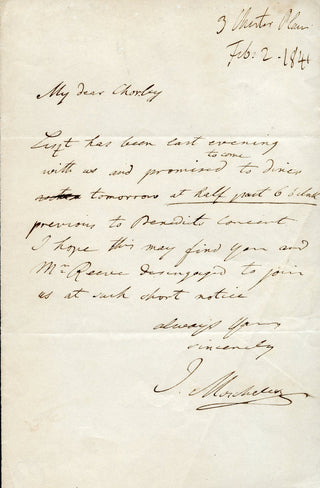 3 Chester Place
Feb: 2. 1841
My dear Chorley
Liszt has been last evening
with us and promised to dine
to come
tomorrow at half past 6 o'clock
previous to Benedicts Concert
I hope this may find you and
Mr Reeve disengaged to join
us at such short notice
always Yours
sincerely
I. Moscheles